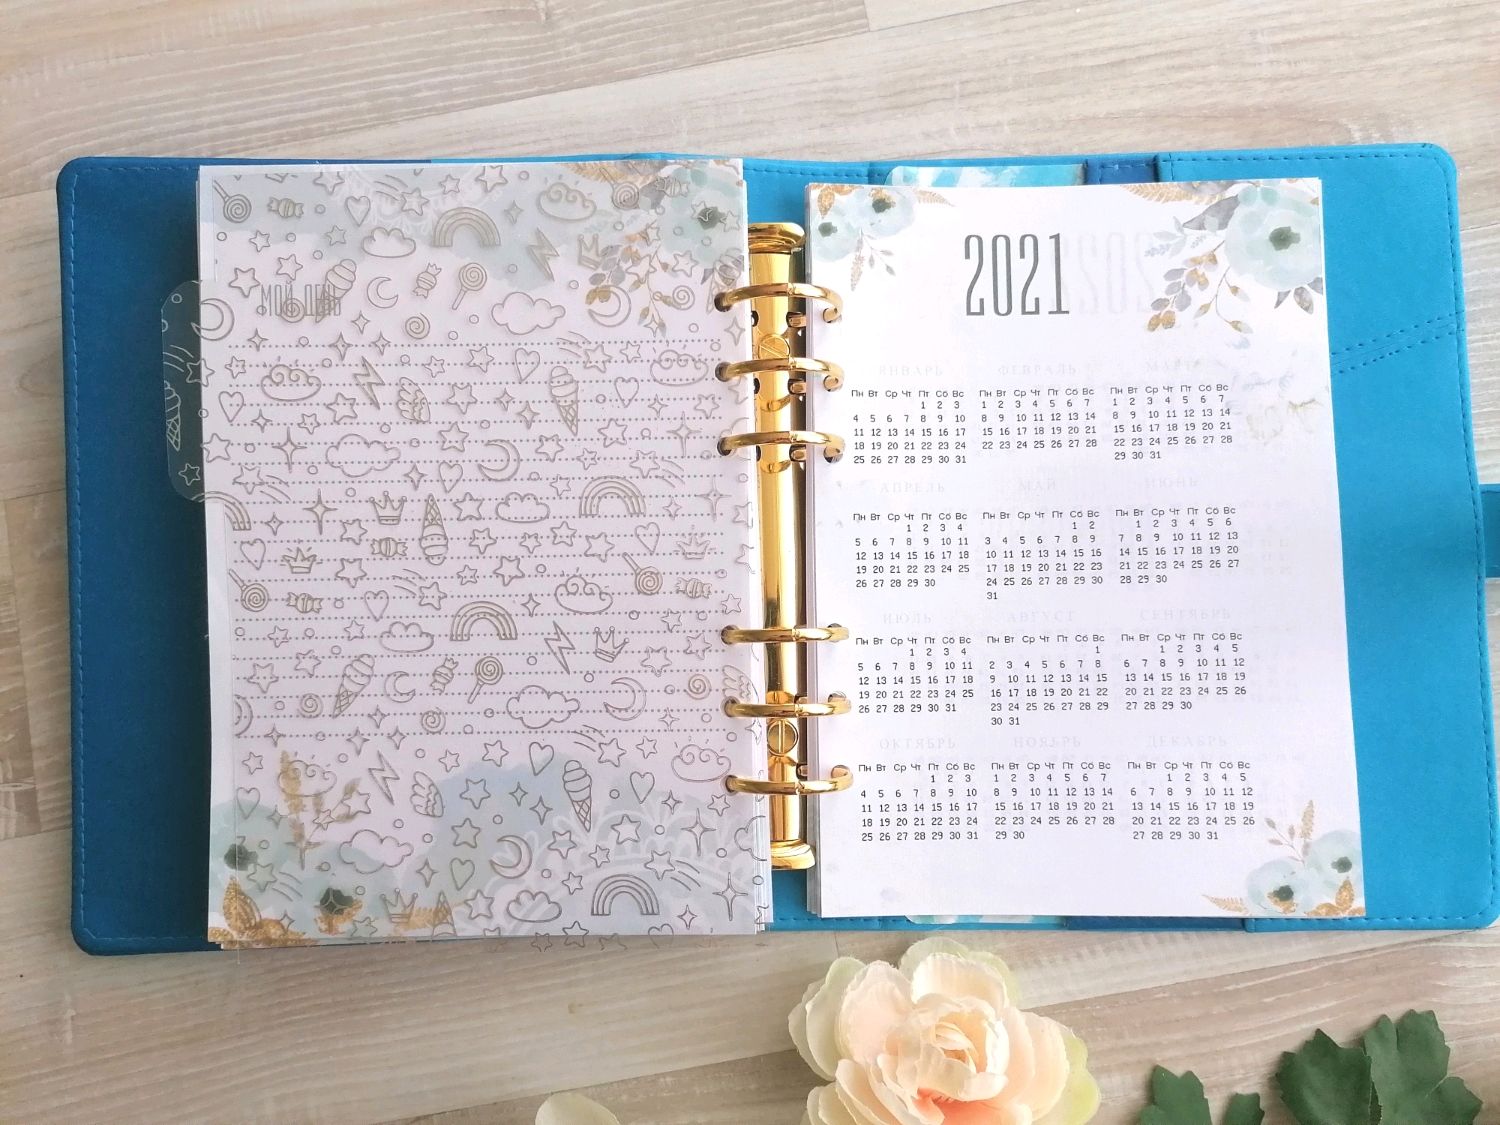 МОЙ ДЕНЬ
2021
ЯНВАРЬ
Пн Вт Ср Чт Пт Сб Вс
1 2 3
4 5 6 7 8 9 10
11 12 13 14 15 16 17
18 19 20 21 22 23 24
25 26 27 28 29 30 31
ФЕВРАЛЬ
Пн Вт Ср Чт Пт Сб Вс
1 2 3 4 5 6 7
8 9 10 11 12 13 14
15 16 17 18 19 20 21
22 23 24 25 26 27 28
МАРТ
Пн Вт Ср Чт Пт Сб Вс
1 2 3 4 5 6 7
8 9 10 11 12 13 14
15 16 17 18 19 20 21
22 23 24 25 26 27 28
29 30 31
АПРЕЛЬ
Пн Вт Ср Чт Пт Сб Вс
1 2 3 4
5 6 7 8 9 10 11
12 13 14 15 16 17 18
19 20 21 22 23 24 25
26 27 28 29 30
МАЙ
Пн Вт Ср Чт Пт Сб Вс
1 2
3 4 5 6 7 8 9
10 11 12 13 14 15 16
17 18 19 20 21 22 23
24 25 26 27 28 29 30
31
ИЮНЬ
Пн Вт Ср Чт Пт Сб Вс
1 2 3 4 5 6
7 8 9 10 11 12 13
14 15 16 17 18 19 20
21 22 23 24 25 26 27
28 29 30
ИЮЛЬ
Пн Вт Ср Чт Пт Сб Вс
1 2 3 4
5 6 7 8 9 10 11
12 13 14 15 16 17 18
19 20 21 22 23 24 25
26 27 28 29 30 31
АВГУСТ
Пн Вт Ср Чт Пт Сб Вс
1
2 3 4 5 6 7 8
9 10 11 12 13 14 15
16 17 18 19 20 21 22
23 24 25 26 27 28 29
30 31
СЕНТЯБРЬ
Пн Вт Ср Чт Пт Сб Вс
1 2 3 4 5
6 7 8 9 10 11 12
13 14 15 16 17 18 19
20 21 22 23 24 25 26
27 28 29 30
ОКТЯБРЬ
Пн Вт Ср Чт Пт Сб Вс
1 2 3
4 5 6 7 8 9 10
11 12 13 14 15 16 17
18 19 20 21 22 23 24
25 26 27 28 29 30 31
НОЯБРЬ
Пн Вт Ср Чт Пт Сб Вс
1 2 3 4 5 6 7
8 9 10 11 12 13 14
15 16 17 18 19 20 21
22 23 24 25 26 27 28
29 30
ДЕКАБРЬ
Пн Вт Ср Чт Пт Сб Вс
1 2 3 4 5
6 7 8 9 10 11 12
13 14 15 16 17 18 19
20 21 22 23 24 25 26
27 28 29 30 31